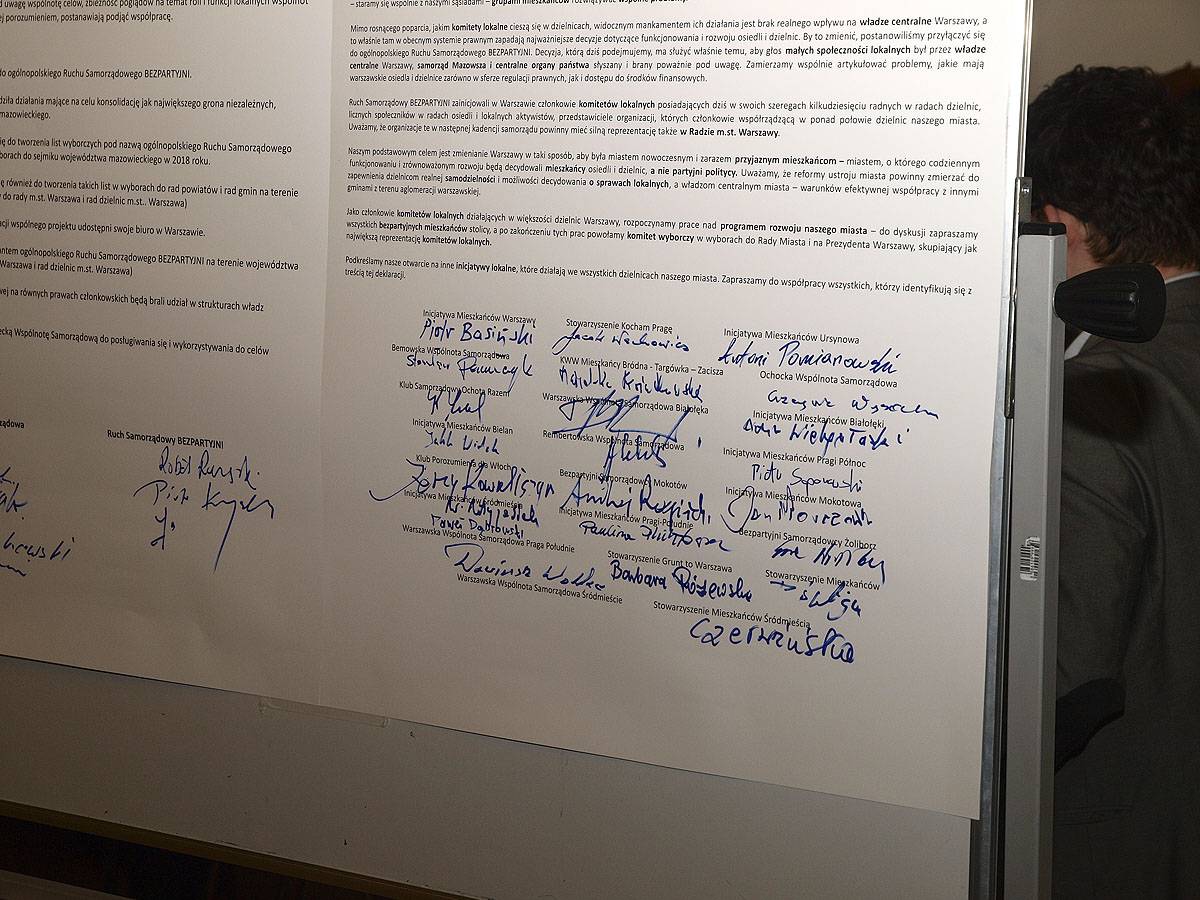 uwagę wspólnotę celów, zbieżność poglądów na temat roli i funkcji lokalnych wspólnot
porozumieniem, postanawiają podjąć współpracę.
do ogólnopolskiego Ruchu Samorządowego BEZPARTYJNI.
działania mające na celu konsolidację jak największego grona niezależnych,
mazowieckiego.
do tworzenia list wyborczych pod nazwą ogólnopolskiego Ruchu Samorządowego
do sejmiku województwa mazowieckiego w 2018 roku.
również do tworzenia takich list w wyborach do rad powiatów i rad gmin na terenie
do rady m.st. Warszawa i rad dzielnic m.st.. Warszawa)
wspólnego projektu udostępni swoje biuro w Warszawie.
ogólnopolskiego Ruchu Samorządowego BEZPARTYJNI na terenie województwa
Warszawa i rad dzielnic m.st. Warszawa)
na równych prawach członkowskich będą brali udział w strukturach władz
Wspólnotę Samorządową do posługiwania się i wykorzystywania do celów
Ruch Samorządowy BEZPARTYJNI
– staramy się wspólnie z naszymi sąsiadami – grupami mieszkańców rozwiązywać wspólne problemy.
Mimo rosnącego poparcia, jakim komitety lokalne cieszą się w dzielnicach, widocznym mankamentem ich działania jest brak realnego wpływu na władze centralne Warszawy, a
to właśnie tam w obecnym systemie prawnym zapadają najważniejsze decyzje dotyczące funkcjonowania i rozwoju osiedli i dzielnic. By to zmienić, postanowiliśmy przyłączyć się
do ogólnopolskiego Ruchu Samorządowego BEZPARTYJNI. Decyzja, którą dziś podejmujemy, ma służyć właśnie temu, aby głos małych społeczności lokalnych był przez władze
centralne Warszawy, samorząd Mazowsza i centralne organy państwa słyszany i brany poważnie pod uwagę. Zamierzamy wspólnie artykułować problemy, jakie mają
warszawskie osiedla i dzielnice zarówno w sferze regulacji prawnych, jak i dostępu do środków finansowych.
Ruch Samorządowy BEZPARTYJNI zainicjowali w Warszawie członkowie komitetów lokalnych posiadających dziś w swoich szeregach kilkudziesięciu radnych w radach dzielnic,
licznych społeczników w radach osiedli i lokalnych aktywistów, przedstawiciele organizacji, których członkowie współrządzą w ponad połowie dzielnic naszego miasta.
Uważamy, że organizacje te w następnej kadencji samorządu powinny mieć silną reprezentację także w Radzie m.st. Warszawy.
Naszym podstawowym celem jest zmienianie Warszawy w taki sposób, aby była miastem nowoczesnym i zarazem przyjaznym mieszkańcom – miastem, o którego codziennym
funkcjonowaniu i zrównoważonym rozwoju będą decydowali mieszkańcy osiedli i dzielnic, a nie partyjni politycy. Uważamy, że reformy ustroju miasta powinny zmierzać do
zapewnienia dzielnicom realnej samodzielności i możliwości decydowania o sprawach lokalnych, a władzom centralnym miasta – warunków efektywnej współpracy z innymi
gminami z terenu aglomeracji warszawskiej.
Jako członkowie komitetów lokalnych działających w większości dzielnic Warszawy, rozpoczynamy prace nad programem rozwoju naszego miasta – do dyskusji zapraszamy
wszystkich bezpartyjnych mieszkańców stolicy, a po zakończeniu tych prac powołamy komitet wyborczy w wyborach do Rady Miasta i na Prezydenta Warszawy, skupiający jak
największą reprezentację komitetów lokalnych.
Podkreślamy nasze otwarcie na inne inicjatywy lokalne, które działają we wszystkich dzielnicach naszego miasta. Zapraszamy do współpracy wszystkich, którzy identyfikują się z
treścią tej deklaracji.
Inicjatywa Mieszkańców Warszawy Stowarzyszenie Kocham Pragę Inicjatywa Mieszkańców Ursynowa
Piotr Basiński Jacek Wachowicz Antoni Pomianowski
Bemowska Wspólnota Samorządowa KWW Mieszkańcy Bródna - Targówka – Zacisza Ochocka Wspólnota Samorządowa
Klub Samorządowy Ochota Razem Warszawska Wspólnota Samorządowa Białołęka Inicjatywa Mieszkańców Białołęki
Inicjatywa Mieszkańców Bielan Rembertowska Wspólnota Samorządowa Inicjatywa Mieszkańców Pragi Północ
Klub Porozumienie dla Włoch Bezpartyjni Samorządowcy Mokotów Inicjatywa Mieszkańców Mokotowa
Inicjatywa Mieszkańców Śródmieścia Inicjatywa Mieszkańców Pragi-Południe Bezpartyjni Samorządowcy Żoliborz
Paweł Dąbrowski Paulina
Warszawska Wspólnota Samorządowa Praga Południe Stowarzyszenie Grunt to Warszawa Stowarzyszenie Mieszkańców
Barbara Różewska
Warszawska Wspólnota Samorządowa Śródmieście Stowarzyszenie Mieszkańców Śródmieścia
Czerwińska